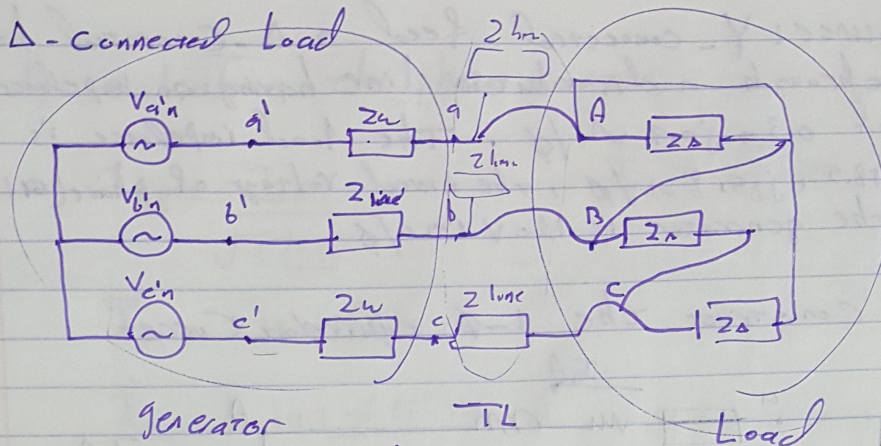 Δ-Connected Load
2 line
Va'n a' Zw a A ZΔ
2 line
Vb'n b' b B ZΔ
Vc'n c' Zw c Z line C ZΔ
generator TL Load